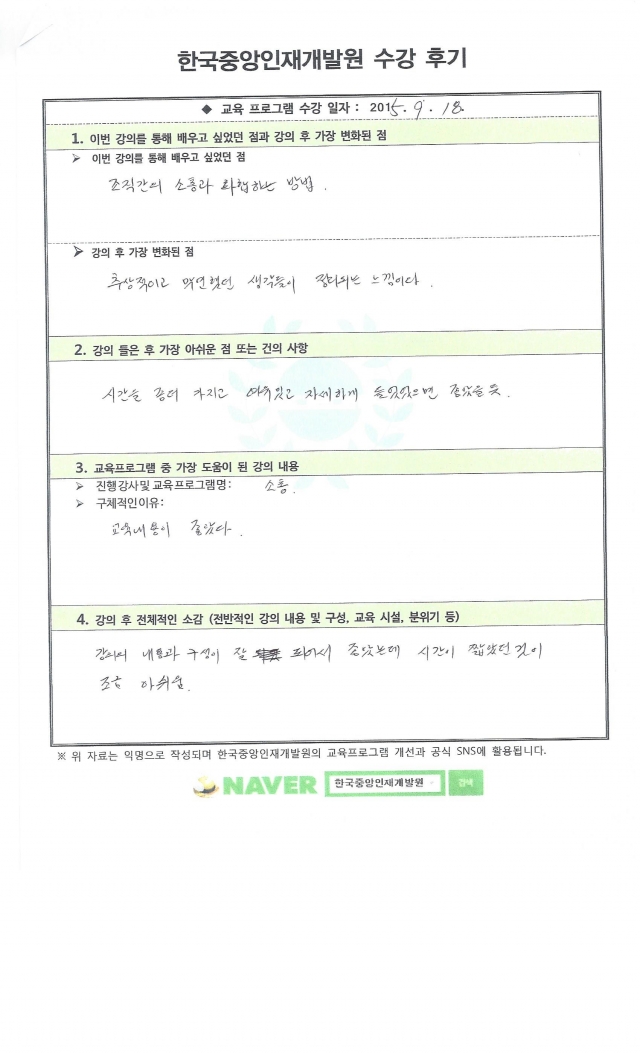 한국중앙인재개발원 수강 후기
◆ 교육 프로그램 수강 일자 : 2015. 9. 18.
1. 이번 강의를 통해 배우고 싶었던 점과 강의 후 가장 변화된 점
➢ 이번 강의를 통해 배우고 싶었던 점
조직간의 소통과 화합하는 방법.
➢ 강의 후 가장 변화된 점
추상적이고 막연했던 생각들이 정리되는 느낌이다.
2. 강의 들은 후 가장 아쉬운 점 또는 건의 사항
시간을 좀더 가지고 여유있고 자세하게 들었었으면 좋았을 듯.
3. 교육프로그램 중 가장 도움이 된 강의 내용
➢ 진행강사및교육프로그램명: 소통.
➢ 구체적인이유:
교육내용이 좋았다.
4. 강의 후 전체적인 소감 (전반적인 강의 내용 및 구성, 교육 시설, 분위기 등)
강의의 내용과 구성이 잘 되어서 좋았는데 시간이 짧았던 것이
조금 아쉬움.
※ 위 자료는 익명으로 작성되며 한국중앙인재개발원의 교육프로그램 개선과 공식 SNS에 활용됩니다.
NAVER 한국중앙인재개발원 검색